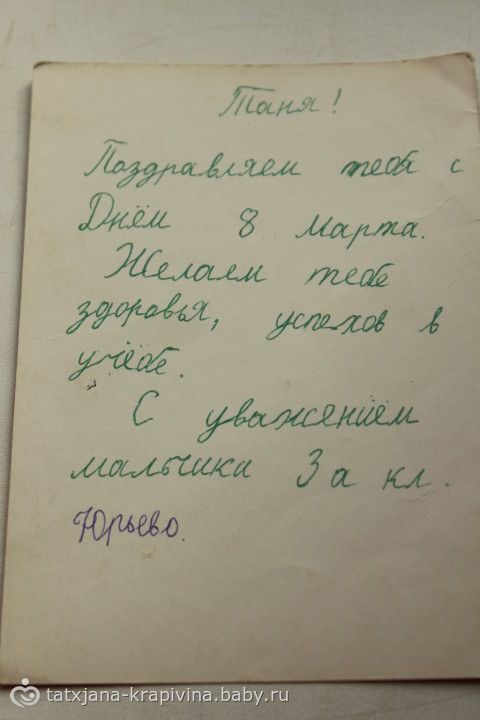 Таня!
Поздравляем тебя с
Днём 8 марта.
Желаем тебе
здоровья, успехов в
учёбе.
С уважением
мальчики 3 а кл.
Юрьево.
tatxjana-krapivina.baby.ru